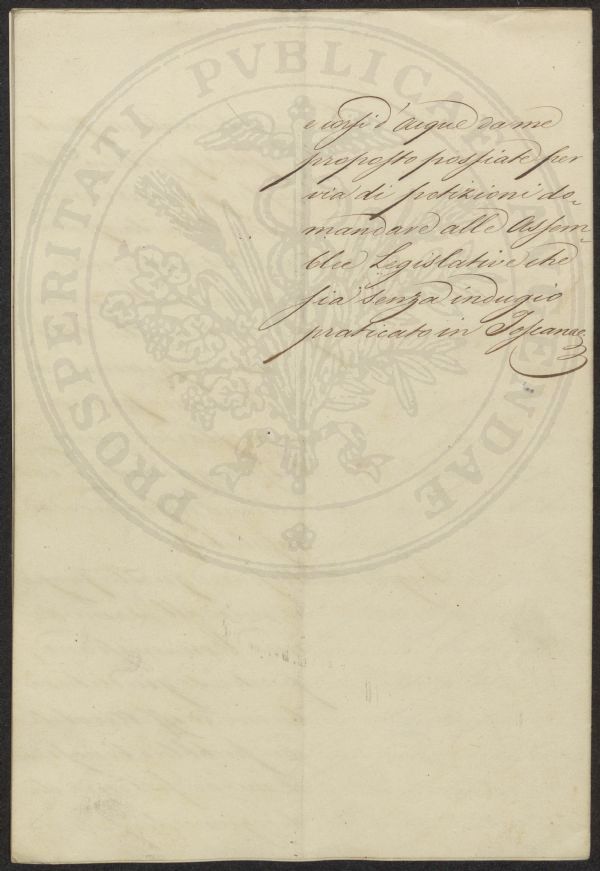 PROSPERITATI PVBLICAE AVGENDAE
e corsi d'Acque da me
proposto possiate per
via di petizioni do-
mandare alle Assem-
blee Legislative che
sia senza indugio
praticato in Toscana